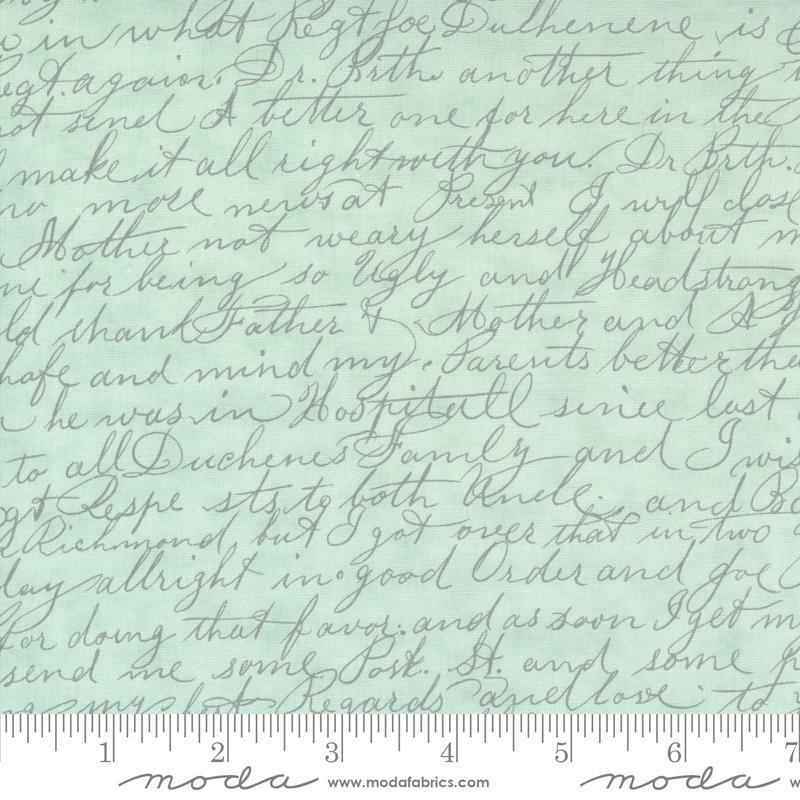 in what Regt Joe Duchenene is
Regt. again. Dr. Brth. another thing
not send A better one for here in the
make it all right with you. Dr Brth.
no more news at Present I will close
Mother not weary herself about m
me for being so Ugly and Headstrong
ld thank Father & Mother and A
hafe and mind my Parents better the
he was in Hospitall since last
to all Duchenes Family and I wis
gt Respe sts to both Uncle. and Bo
Richmond, but I got over that in two
day allright in good Order and Joe
for doing that favor. and as soon I get m
send me some Post. St. and some p
my best Regards and love to
1 2 3 4 5 6 7
moda www.modafabrics.com moda w